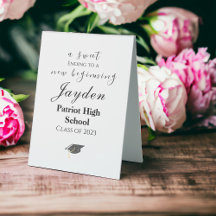 a sweet
ENDING TO A
new beginning
Jayden
Patriot High
School
CLASS OF 2023